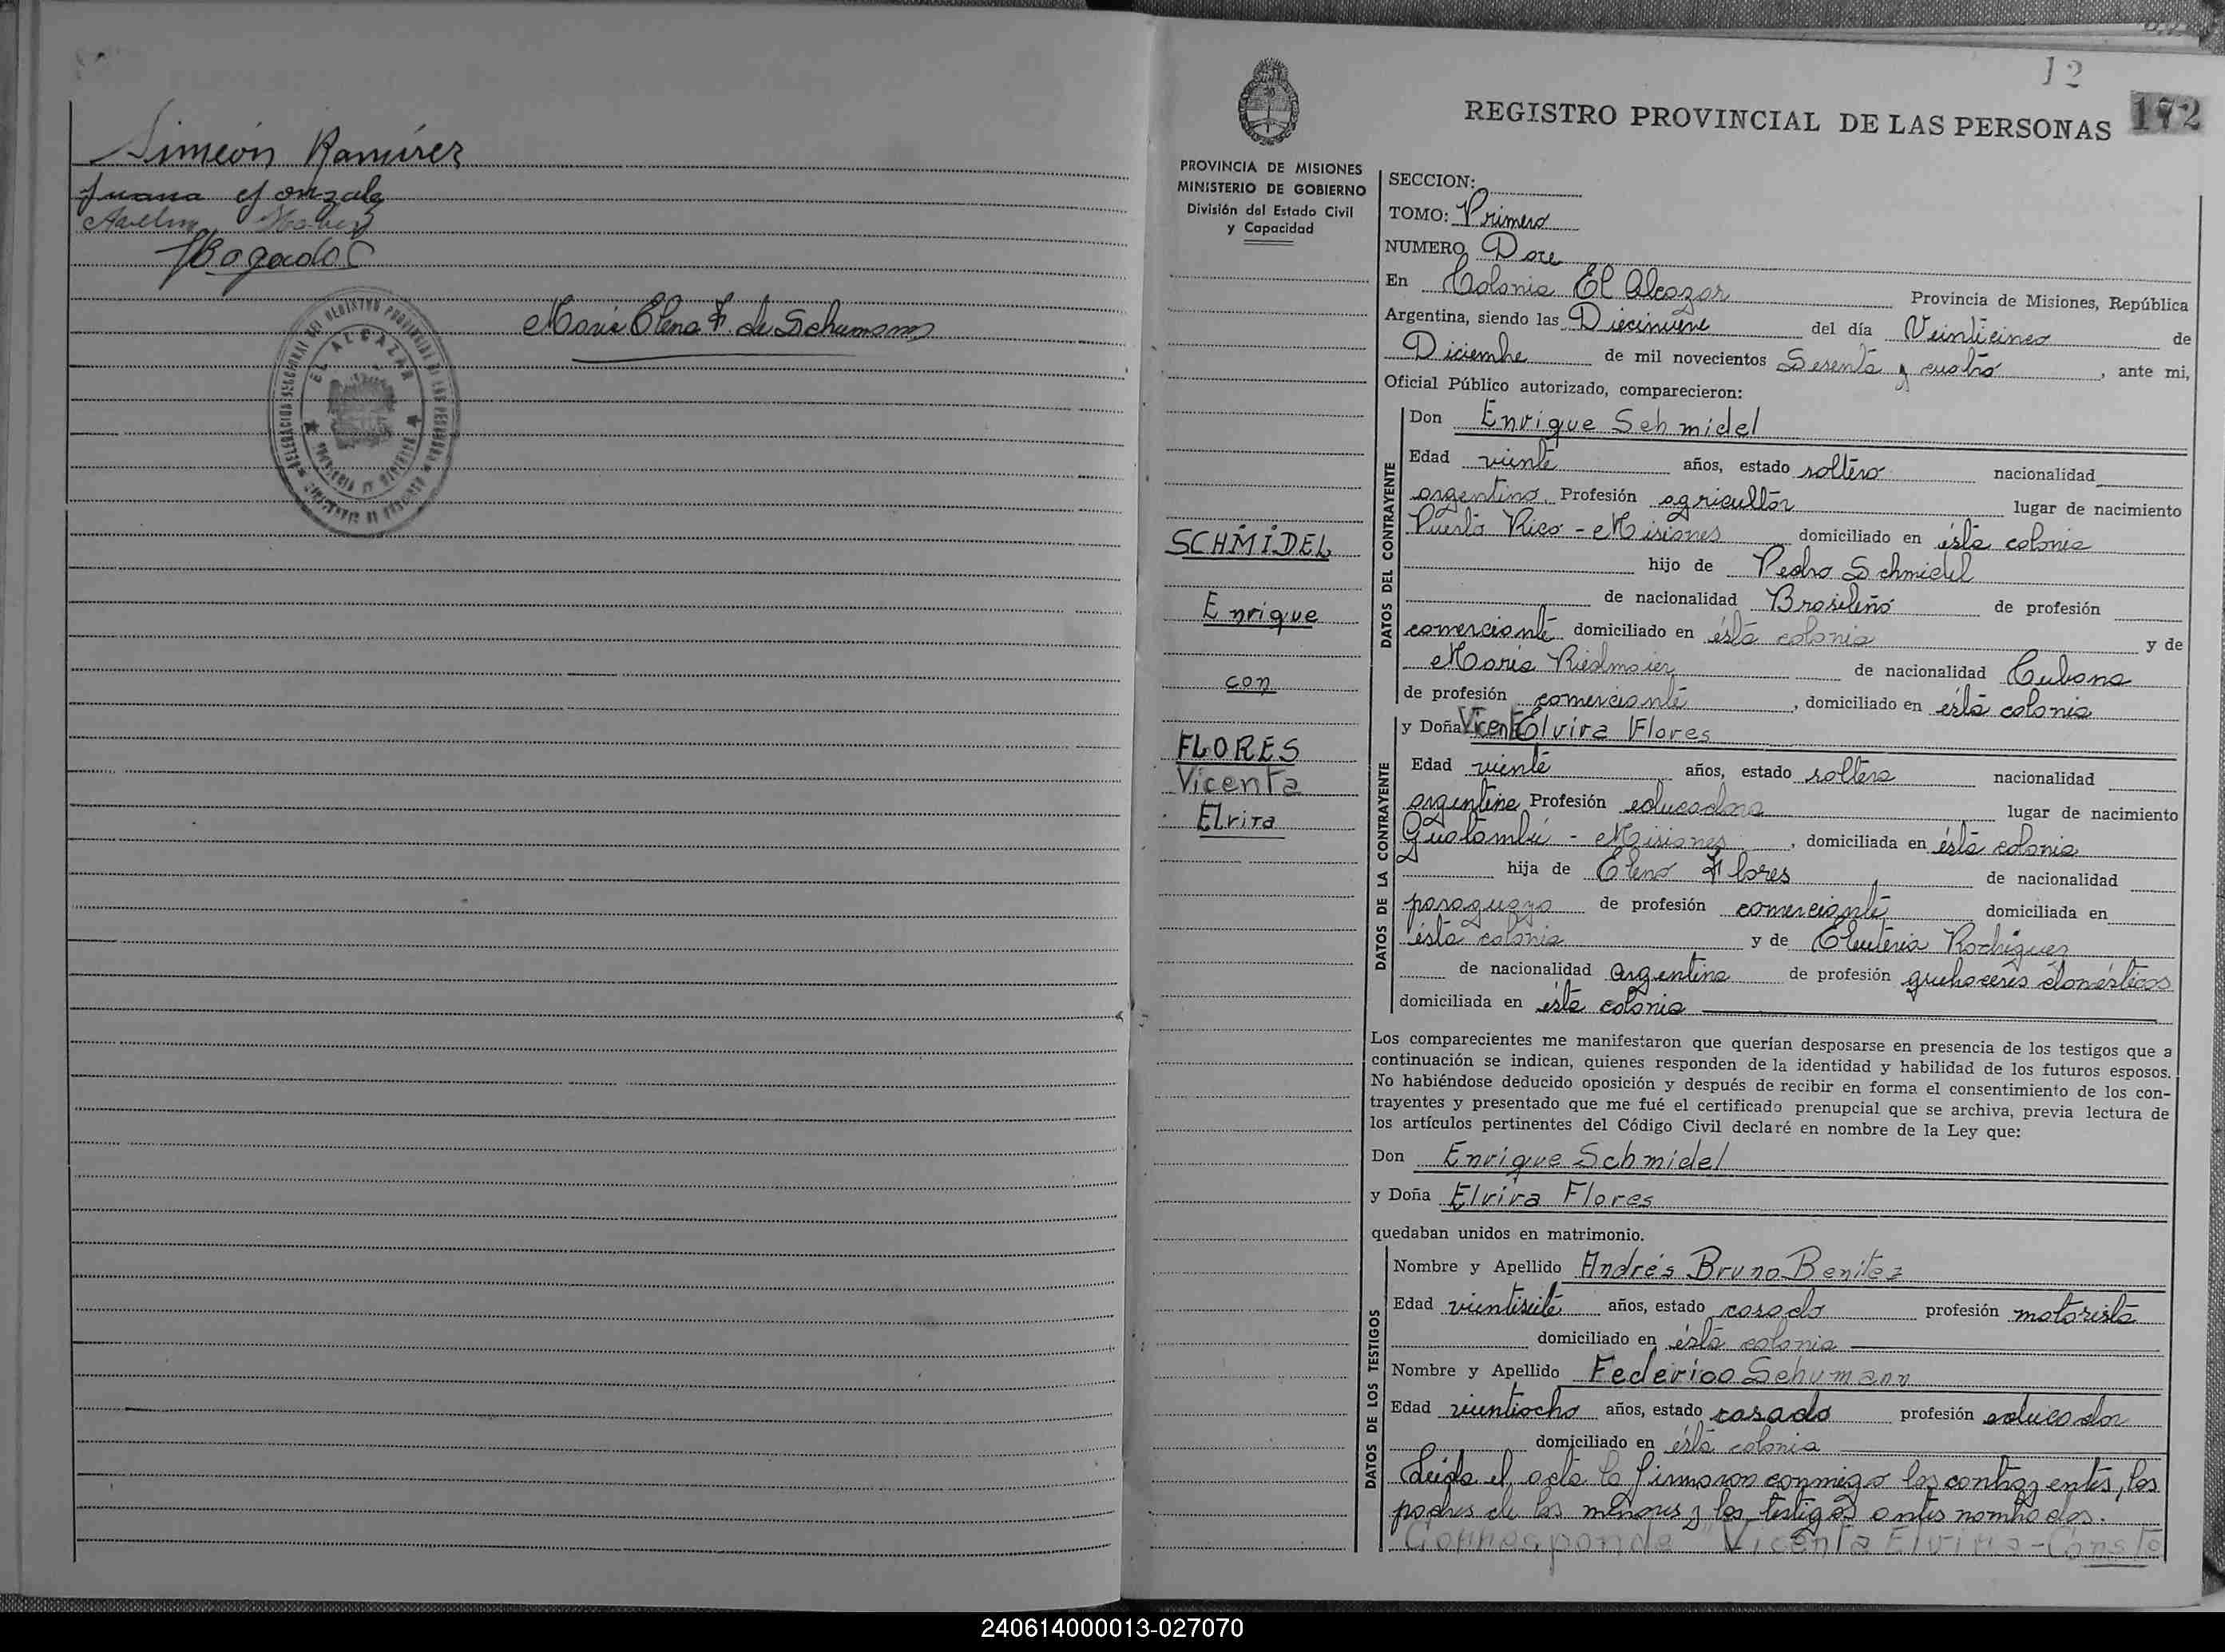 Simeón Ramírez
Juana Gonzalez
María Elena F. de Schumann
EL ALCAZAR
12
172
REGISTRO PROVINCIAL DE LAS PERSONAS
PROVINCIA DE MISIONES
MINISTERIO DE GOBIERNO
División del Estado Civil
y Capacidad
SCHMIDEL
Enrique
con
FLORES
Vicenta
Elvira
SECCION:
TOMO: Primero
NUMERO Doce
En Colonia El Alcazar Provincia de Misiones, República
Argentina, siendo las Diecinueve del día Veinticinco de
Diciembre de mil novecientos Sesenta y cuatro, ante mi,
Oficial Público autorizado, comparecieron:
DATOS DEL CONTRAYENTE
Don Enrique Schmidel
Edad viente años, estado soltero nacionalidad
argentino Profesión agricultor lugar de nacimiento
Puerto Rico - Misiones domiciliado en ésta colonia
hijo de Pedro Schmidel
de nacionalidad Brasileño de profesión
comerciante domiciliado en ésta colonia y de
María Riedmaier de nacionalidad Cubana
de profesión comerciante, domiciliado en ésta colonia
DATOS DE LA CONTRAYENTE
y Doña Vicenta Elvira Flores
Edad viente años, estado soltera nacionalidad
argentina Profesión educadora lugar de nacimiento
Guatambú - Misiones, domiciliada en ésta colonia
hija de Eleno Flores de nacionalidad
paraguayo de profesión comerciante domiciliada en
ésta colonia y de Eleuteria Rodriguez
de nacionalidad argentina de profesión quehaceres domésticos
domiciliada en ésta colonia
Los comparecientes me manifestaron que querían desposarse en presencia de los testigos que a
continuación se indican, quienes responden de la identidad y habilidad de los futuros esposos.
No habiéndose deducido oposición y después de recibir en forma el consentimiento de los con-
trayentes y presentado que me fué el certificado prenupcial que se archiva, previa lectura de
los artículos pertinentes del Código Civil declaré en nombre de la Ley que:
Don Enrique Schmidel
y Doña Elvira Flores
quedaban unidos en matrimonio.
DATOS DE LOS TESTIGOS
Nombre y Apellido Andrés Bruno Benitez
Edad vientisiete años, estado casado profesión motorista
domiciliado en ésta colonia
Nombre y Apellido Federico Schumann
Edad vientiocho años, estado casado profesión educador
domiciliado en ésta colonia
Leida el acta la firmaron conmigo los contrayentes, los
padres de los menores y los testigos antes nombrados.
Corresponde "Vicenta Elvira - Conste
240614000013-027070